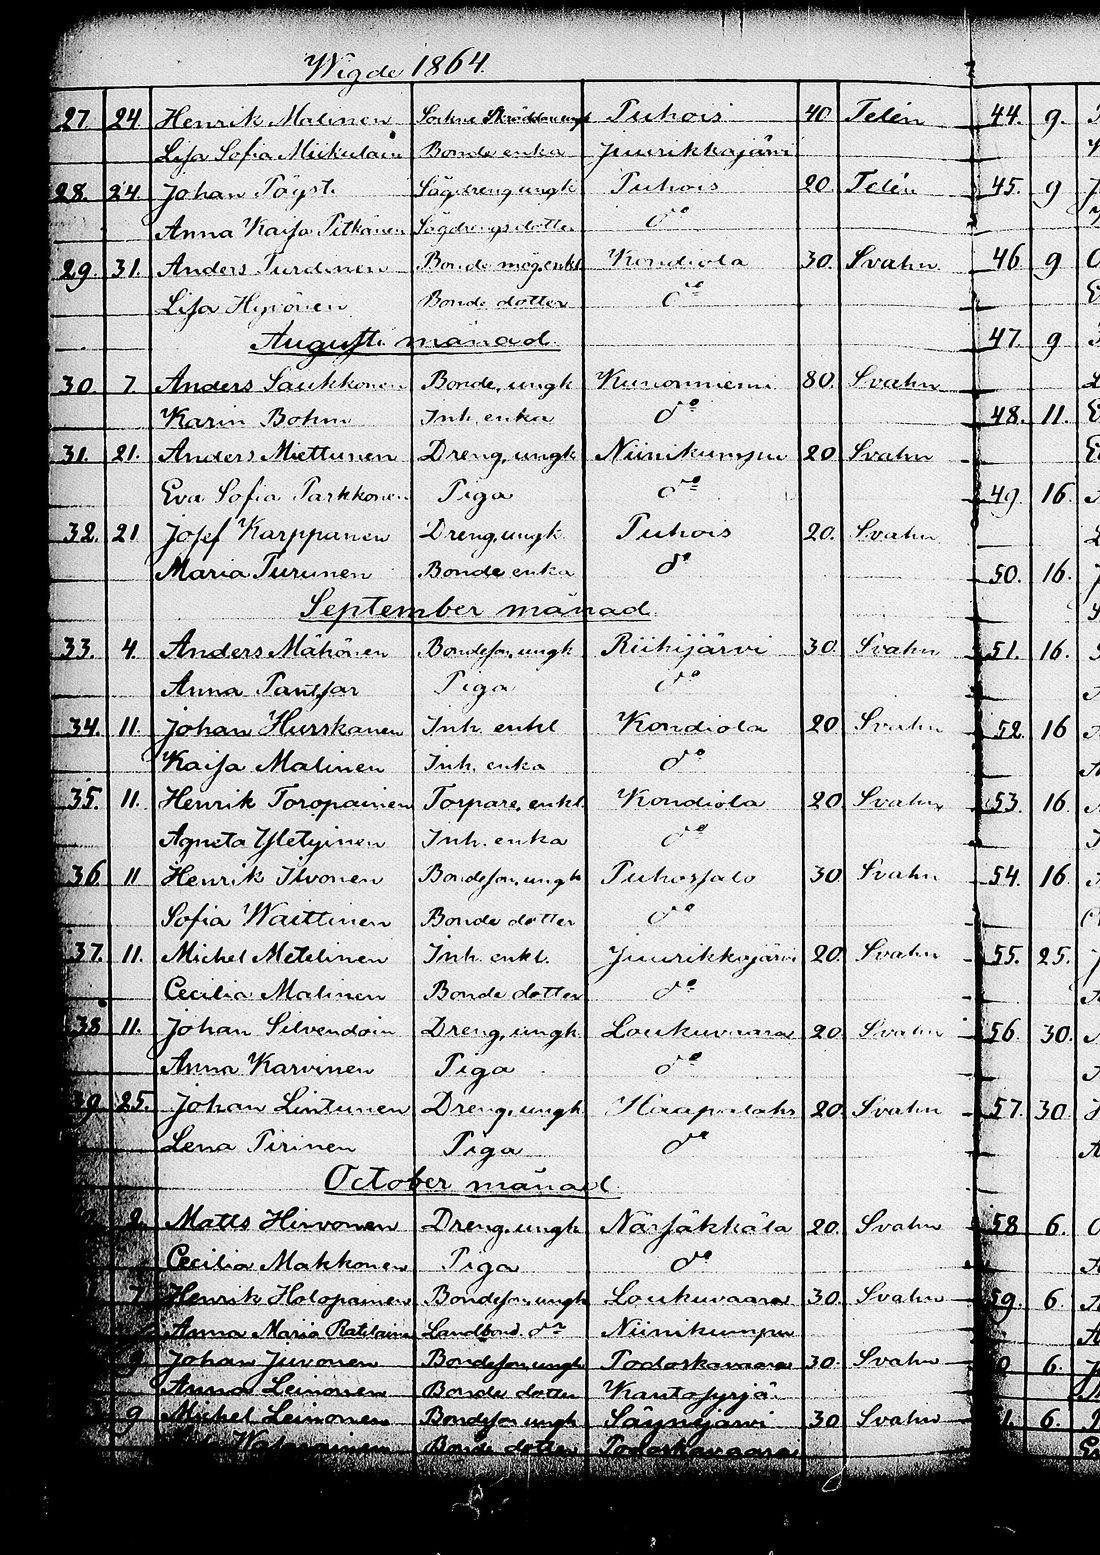 Wigde 1864.
27. 24 Henrik Malinen Sockne Skräddare ungk Puhois 40 Telén 44. 9.
Lisa Sofia Miikulain Bonde enka Juurikkajärvi
28. 24 Johan Pöyst. Sågdreng, ungk Puhois 20. Telén 45. 9
Anna Kaisa Pitkänen Sågdrengs dotter do
29. 31. Anders Turdinen Bonde måg, enkl Kondiola 30. Svahn 46 9
Lisa Hyvönen Bonde dotter do
Augusti månad. 47. 9
30. 7. Anders Saukkonen Bonde, ungk Kunonniemi 80. Svahn
Karin Bohm Inh. enka do 48. 11.
31. 21. Anders Miettunen Dreng, ungk Niinikumpu 20 Svahn
Eva Sofia Parkkonen Piga do 49. 16.
32. 21 Josef Karppanen Dreng, ungk Puhois 20. Svahn
Maria Turunen Bonde enka do 50. 16.
September månad.
33. 4 Anders Mähönen Bondeson, ungk Riihijärvi 30. Svahn 51. 16.
Anna Pantsar Piga do
34. 11. Johan Hurskanen Inh. enkl Kondiola 20 Svahn 52. 16
Kaisa Malinen Inh. enka do
35. 11. Henrik Toropainen Torpare, enkl. Kondiola 20. Svahn 53. 16
Agneta Yletyinen Inh. enka do
36 11 Henrik Ilvonen Bondeson, ungk Puhossalo 30. Svahn 54. 16
Sofia Waittinen Bonde dotter do
37. 11. Michel Metelinen Inh. enkl. Juurikkajärvi 20. Svahn 55. 25.
Cecilia Malinen Bonde dotter do
38 11. Johan Silvendoin Dreng, ungk Loukuvaara 20. Svahn 56. 30.
Anna Karvinen Piga do
39. 25. Johan Lintunen Dreng, ungk Haapalaks 20. Svahn 57. 30
Lena Pirinen Piga do
October månad.
2. Matts Hirvonen Dreng, ungk Närsäkkälä 20. Svahn 58 6.
Cecilia Makkonen Piga do
7. Henrik Holopainen Bondeson, ungk Loukuvaara 30. Svahn 59. 6
Anna Maria Ratilainen Landbond. dr Niinikumpu
9 Johan Juvonen Bondeson, ungk Podoskavaara 30. Svahn 6.
Anna Leinonen Bonde dotter Kantosyrjä
9 Michel Leinonen Bondeson, ungk Säynejärvi 30 Svahn 6.
Bonde dotter Podoskavaara